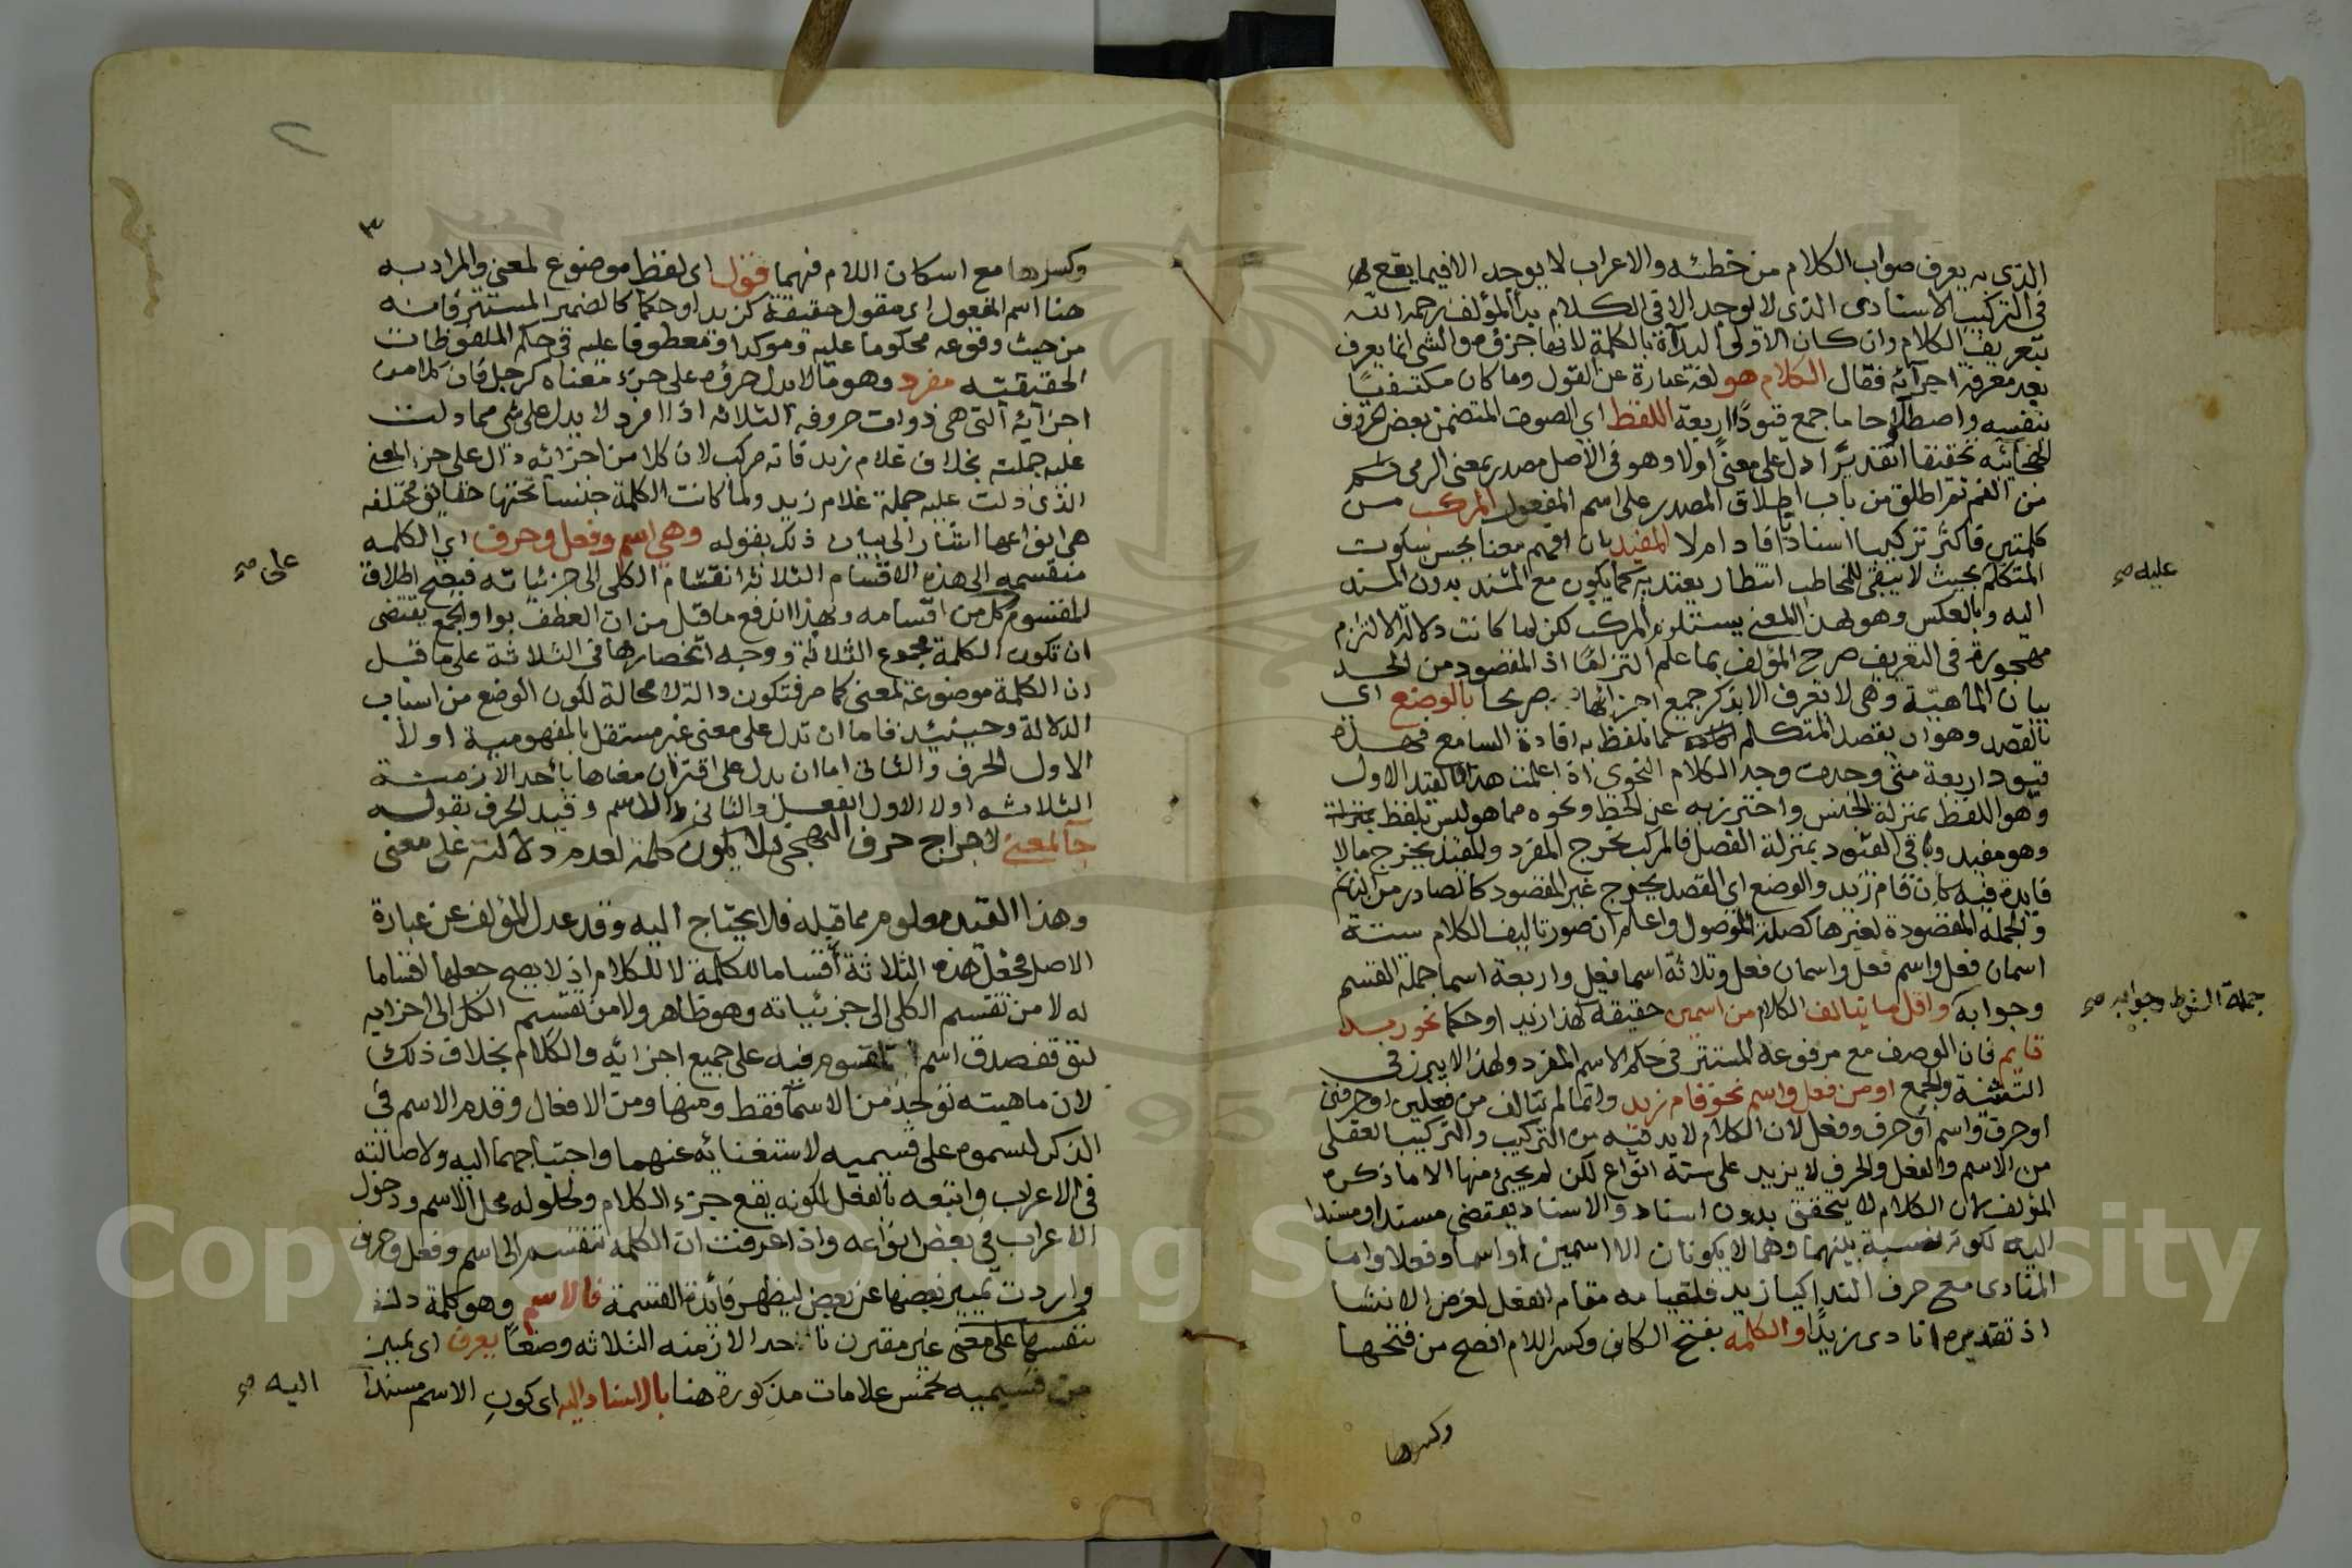 الذى به يعرف صواب الكلام من خطئه والاعراب لا يوجد الا فيما يقع
فى التركيب الاسنادى الذى لا يوجد الا فى الكلام بدأ المؤلف رحمه الله
بتعريف الكلام وان كان الاولى البدآة بالكلمة لانها جزؤه والشى انما يعرف
بعد معرفة اجزآئه فقال الكلام هو لغة عبارة عن القول وما كان مكتفيا
بنفسه واصطلاحا ما جمع قيودًا اربعة اللفظ اى الصوت المتضمن بعض الحروف
الهجائيه تحقيقا او تقديرًا دل على معنىً اولا وهو فى الاصل مصدر بمعنى الرمى
من الفم ثم اطلق من باب اطلاق المصدر على اسم المفعول المركب من
كلمتين فاكثر تركيبا اسناديا افاد ام لا المفيد بان افهم معنا يحسن سكوت
المتكلم بحيث لا يبقى للمخاطب انتظار يعتد به كما يكون مع المسند بدون المسند
اليه وبالعكس وهو بهذا المعنى يستلزم المركب لكن لما كانت دلالة الالتزام
مهجورة فى التعريف صرح المؤلف بما علم التزاما اذ المقصود من الحد
بيان الماهيّة وهى لا تعرف الا بذكر جميع اجزائها صريحا بالوضع اى
بالقصد وهو ان يقصد المتكلم بما تلفظ به افادة السامع فهذه
قيود اربعة متى وجدت وجد الكلام النحوى اذا علمت هذا فالقيد الاول
وهو اللفظ بمنزلة الجنس واحترز به عن الخط ونحوه مما هو ليس بلفظ بمنزلة
وهو مفيد وباقى القيود بمنزلة الفصل فالمركب يخرج المفرد والمفيد يخرج ما لا
فايدة فيه كان قام زيد والوضع اى القصد يخرج غير المقصود كالصادر من النايم
والجمله المقصودة لغيرها كصلة الموصول واعلم ان صور تاليف الكلام ستة
اسمان فعل واسم فعل واسمان فعل وثلاثة اسما فعل واربعة اسما جملة القسم
وجوابه واقل ما يتالف الكلام من اسمين حقيقة كهذا زيد او حكما نحو زيد
قايم فان الوصف مع مرفوعه المستتر فى حكم الاسم المفرد ولهذا لا يبرز فى
التثنية والجمع او من فعل واسم نحو قام زيد وانما لم يتالف من فعلين او حرفين
او حرف واسم او حرف وفعل لان الكلام لا بد فيه من التركيب والتركيب العقلى
من الاسم والفعل والحرف لا يزيد على ستة انواع لكن لم يجئ منها الا ما ذكره
المؤلف لان الكلام لا يتحقق بدون اسناد والاسناد يقتضى مسندا ومسندا
اليه لكونه نسبة بينهما وهما لا يكونان الا اسمين او اسما وفعلا واما
المنادى مع حرف الندا كيا زيد فلقيامه مقام الفعل لغرض الانشا
اذ تقديره انادى زيدًا والكلمة بفتح الكاف وكسر اللام افصح من فتحها
وكسرها
عليه صح
جملة الشرط وجوابه صح
٣
وكسرها مع اسكان اللام فيهما قول اى لفظ موضوع لمعنى والمراد به
هنا اسم المفعول اى مقول حقيقة كزيد او حكما كالضمير المستتر فانه
من حيث وقوعه محكوما عليه وموكدا ومعطوفا عليه فى حكم الملفوظات
الحقيقيه مفرد وهو ما لا يدل جزؤه على جزء معناه كرجل فان كلا من
اجزآئه التى هى ذوات حروفه الثلاثه اذا افرد لا يدل على شى مما دلت
عليه جملته بخلاف غلام زيد فانه مركب لان كلا من اجزائه دال على جزء المعنى
الذى دلت عليه جملة غلام زيد ولما كانت الكلمة جنسا تحتها حقايق مختلفه
هى انواعها اشار الى بيان ذلك بقوله وهى اسم وفعل وحرف اى الكلمه
منقسمه الى هذه الاقسام الثلاثة انقسام الكلى الى جزئياته فيصح اطلاق
المقسوم كل من اقسامه وبهذا اندفع ما قيل من ان العطف بواو الجمع يقتضى
ان تكون الكلمة مجموع الثلاثة ووجه انحصارها فى الثلاثة على ما قيل
ان الكلمة موضوعة لمعنى كما مر فتكون دالة لا محالة لكون الوضع من اسباب
الدلالة وحينئيذ فاما ان تدل على معنى غير مستقل بالمفهومية اولا
الاول الحرف والثانى اما ان يدل على اقتران معناها باحد الازمنة
الثلاثه اولا الاول الفعل والثانى الاسم وقيد الحرف بقوله
جا لمعنى لاخراج حرف التهجى فلا يكون كلمة لعدم دلالته على معنى
وهذا القيد معلوم مما قبله فلا يحتاج اليه وقد عدل المؤلف عن عبارة
الاصل فجعل هذه الثلاثة أقساما للكلمة لا للكلام اذ لا يصح جعلها اقساما
له لا من تقسيم الكلى الى جزئياته وهو ظاهر ولا من تقسيم الكل الى اجزايه
لتوقف صدق اسم المقسوم فيه على جميع اجزائه والكلام بخلاف ذلك
لان ماهيته توجد من الاسمآ فقط ومنها ومن الافعال وقدم الاسم فى
الذكر لسموه على قسيميه لاستغنائه عنهما واحتياجهما اليه ولاصالته
فى الاعراب واتبعه بالفعل لكونه يقع جزء الكلام ولحلوله محل الاسم ودخول
الاعراب فى بعض انواعه واذا عرفت ان الكلمة تنقسم الى اسم وفعل وحرف
واردت تمييز بعضها عن بعض ليظهر فائدة القسمة فالاسم وهو كلمة دلت
بنفسها على معنى غير مقترن باحد الازمنه الثلاثه وضعًا يعرف اى يميز
من قسيميه بخمس علامات مذكورة هنا بالاسناد اليه اى كون الاسم مسندا
على صح
اليه صح
Copyright © King Saud University
1957